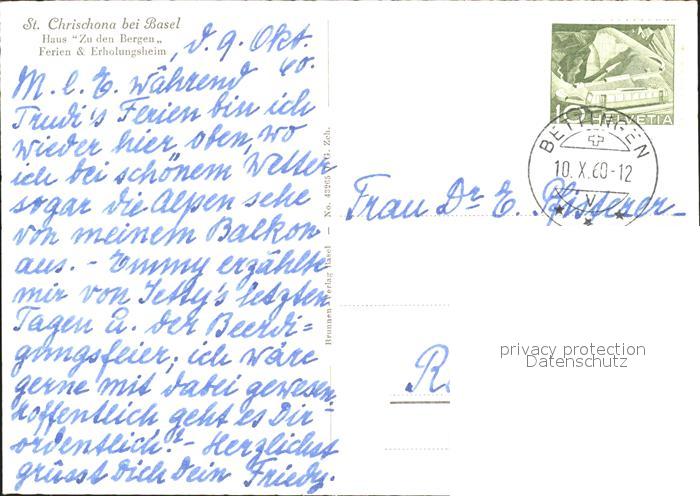 St. Chrischona bei Basel
Haus "Zu den Bergen„
Ferien & Erholungsheim
, d. 9. Okt.
60.
M. l. E. Während
Trudi's Ferien bin ich
wieder hier oben, wo
ich bei schönem Wetter
sogar die Alpen sehe
von meinem Balkon
aus. - Emmy erzählte
mir von Jetty's letzten
Tagen u. der Beerdi=
gungsfeier; ich wäre
gerne mit dabei gewesen.
Hoffentlich geht es Dir
ordentlich? - Herzlichst
grüsst Dich Dein Friedy.
Brunnen Verlag Basel — No. 43265 G. Zch.
HELVETIA
BETTINGEN
10.X.60-12
Frau Dr E. Pfisterer-
privacy protection
Datenschutz